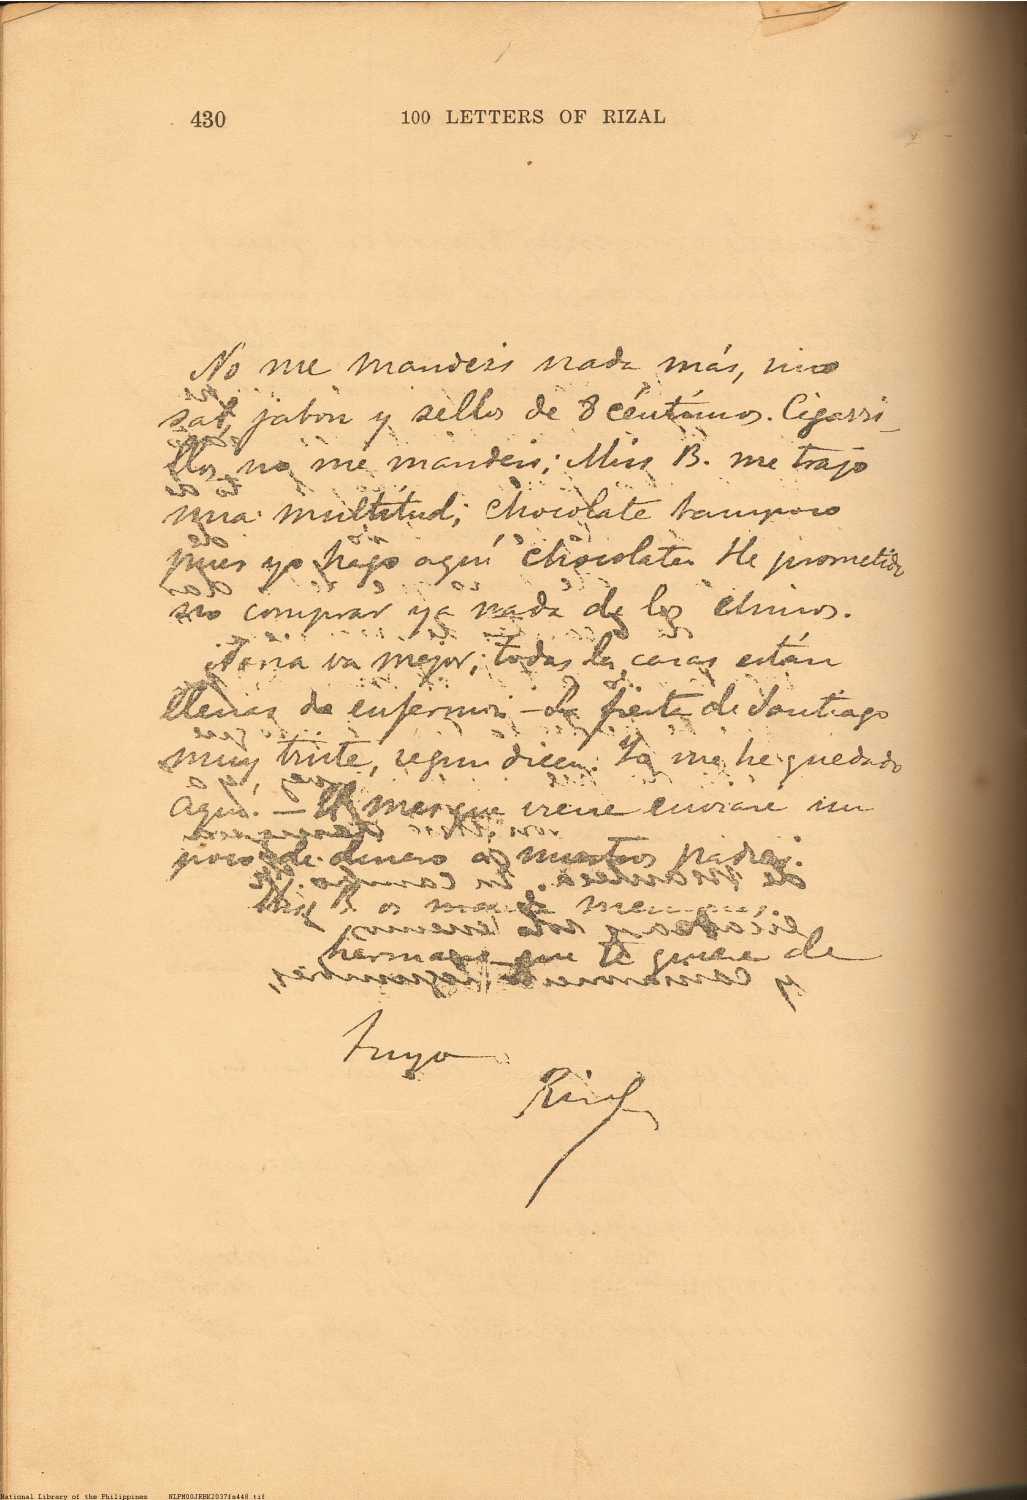 430 100 LETTERS OF RIZAL
No me mandeis nada más, sino
sal, jabon y sellos de 8 céntimos. Cigarri-
llos no me mandeis; Miss B. me trajo
una multitud; chocolate tampoco
pues yo hago aquí chocolate. He prometido
no comprar ya nada de los chinos.
va mejor; todas las casas están
llenas de enfermos — La fiesta de Santiago
muy triste, segun dicen. Yo me he quedado
aquí. — El mes que viene enviaré un
poco de dinero a nuestros padres.
Miss B. os
hermano que te quiere de
tuyo
Rizal
National Library of the Philippines NLPM00JRBK2037fs448.tif